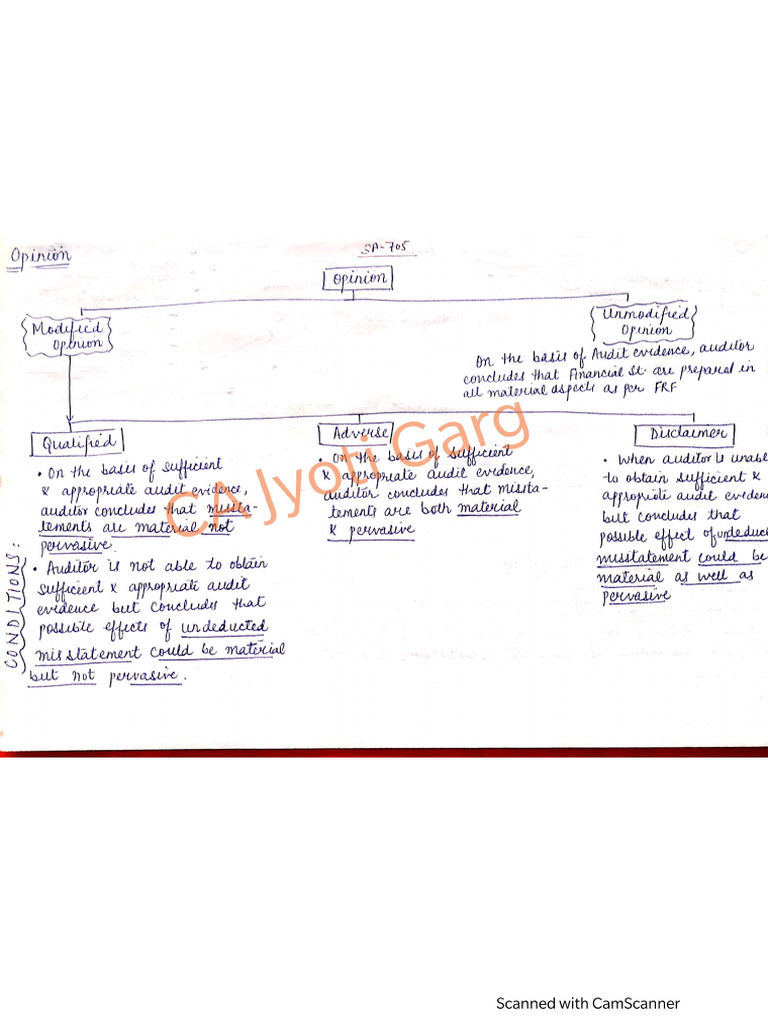 Opinion
SA-705
Opinion
Modified
Opinion
Unmodified
Opinion
On the basis of Audit evidence, auditor
concludes that Financial St. are prepared in
all material aspects as per FRF
Qualified
• On the basis of sufficient
& appropriate audit evidence,
auditor concludes that missta-
tements are material not
pervasive.
• Auditor is not able to obtain
sufficient & appropriate audit
evidence but concludes that
possible effects of undeducted
misstatement could be material
but not pervasive.
CONDITIONS:
Adverse
• On the basis of sufficient
& appropriate audit evidence,
auditor concludes that missta-
tements are both material
& pervasive
Disclaimer
• When auditor is unable
to obtain sufficient &
appropriate audit eviden
but concludes that
possible effect of undeduc
misstatement could be
material as well as
pervasive
CA Jyoti Garg
Scanned with CamScanner